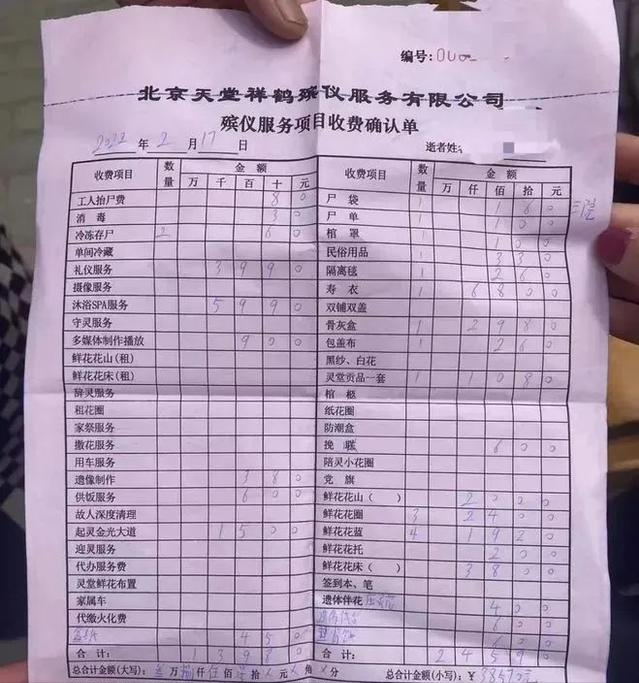 编号:
北京天堂祥鹤殡仪服务有限公司
殡仪服务项目收费确认单
2022 年 2 月 17 日 逝者姓名
收费项目 数量 金额 万 千 百 十 元 收费项目 数量 金额 万 仟 佰 拾 元
工人抬尸费 8 0 尸袋 1 1 6 0
消毒 3 0 尸单 1 1 0 0
冷冻存尸 2 6 0 棺罩 1 1 0 0
单间冷藏 民俗用品 1 3 3 0
礼仪服务 3 9 9 0 隔离毯 1 2 6 0
摄像服务 寿衣 1 6 8 0 0
沐浴SPA服务 5 9 9 0 双铺双盖
守灵服务 骨灰盒 1 2 9 8 0
多媒体制作播放 9 0 0 包盖布 1 2 6 0
鲜花花山(租) 黑纱、白花
鲜花花床(租) 灵堂贡品一套 1 1 0 8 0
辞灵服务 棺柩
租花圈 纸花圈
家祭服务 防潮盒
撒花服务 挽联 6 0 0
用车服务 陪灵小花圈
遗像制作 3 8 0 党旗
供饭服务 6 0 0 鲜花花山( ) 2 0 0 0
故人深度清理 鲜花花圈 3 2 4 0 0
起灵金光大道 1 5 0 0 鲜花花蓝 4 1 9 2 0
迎灵服务 鲜花花托 2 0 0
代办服务费 鲜花花床( ) 3 8 0 0
灵堂鲜花布置 签到本、笔
家属车 遗体伴花 4 0 0
代缴火化费 6 0 0
4 5 0 6 0 0
合计: 1 3 9 8 0 合计: 2 4 5 9 0
总合计金额(大写): 叁 万 捌 仟 伍 佰 柒 拾 元 角 分 总合计金额(小写): ¥38570元